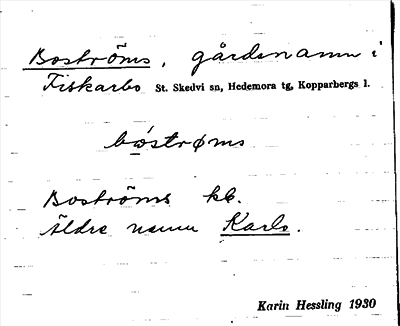 Boströms, gårdsnamn i
Fiskarbo St. Skedvi sn, Hedemora tg, Kopparbergs l.
bóstrøms
Boströms kb.
Äldre namn Karls.
Karin Hessling 1930